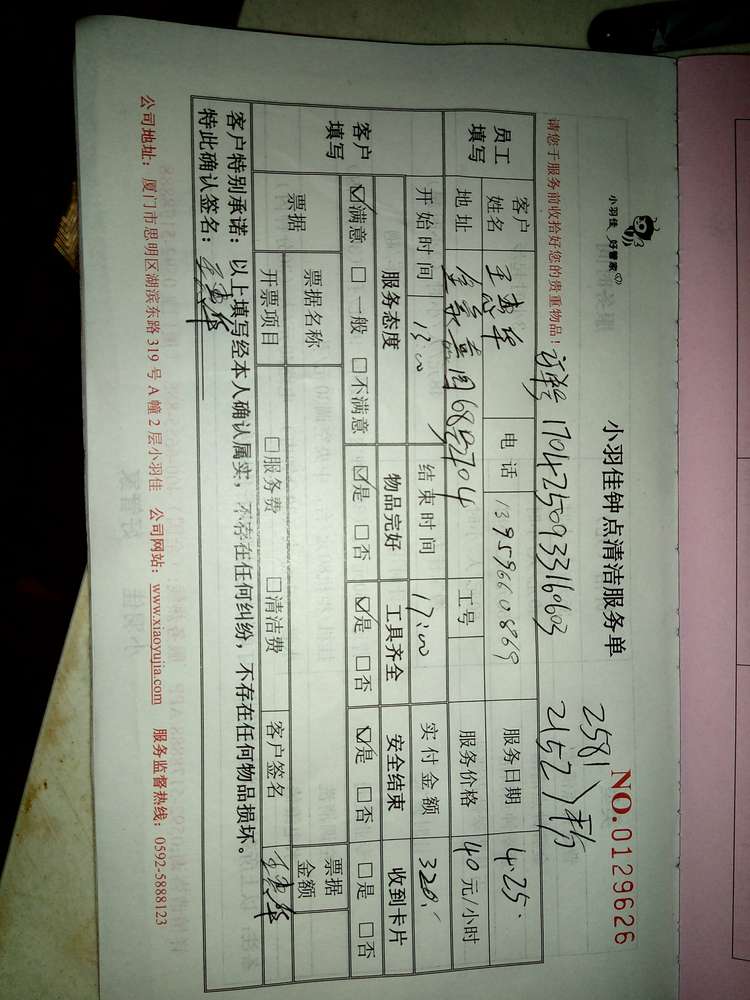 小羽佳 好管家
小羽佳钟点清洁服务单
NO.0129626
请您于服务前收拾好您的贵重物品！
订单号 170425093316063
2581
2152
员工填写
客户姓名
电话 13959660869
服务日期 4.25.
地址
68号704
工号
服务价格 40元/小时
开始时间 13:00
结束时间 17:00
实付金额 320.
客户填写
服务态度 物品完好 工具齐全 安全结束 收到卡片
☑满意 □一般 □不满意 ☑是 □否 ☑是 □否 ☑是 □否 □是 □否
票据
票据名称
票据金额
开票项目 □服务费 □清洁费 客户签名
客户特别承诺：以上填写经本人确认属实，不存在任何纠纷，不存在任何物品损坏。
特此确认签名：
公司地址：厦门市思明区湖滨东路319号A幢2层小羽佳 公司网站：www.xiaoyujia.com 服务监督热线：0592-5888123